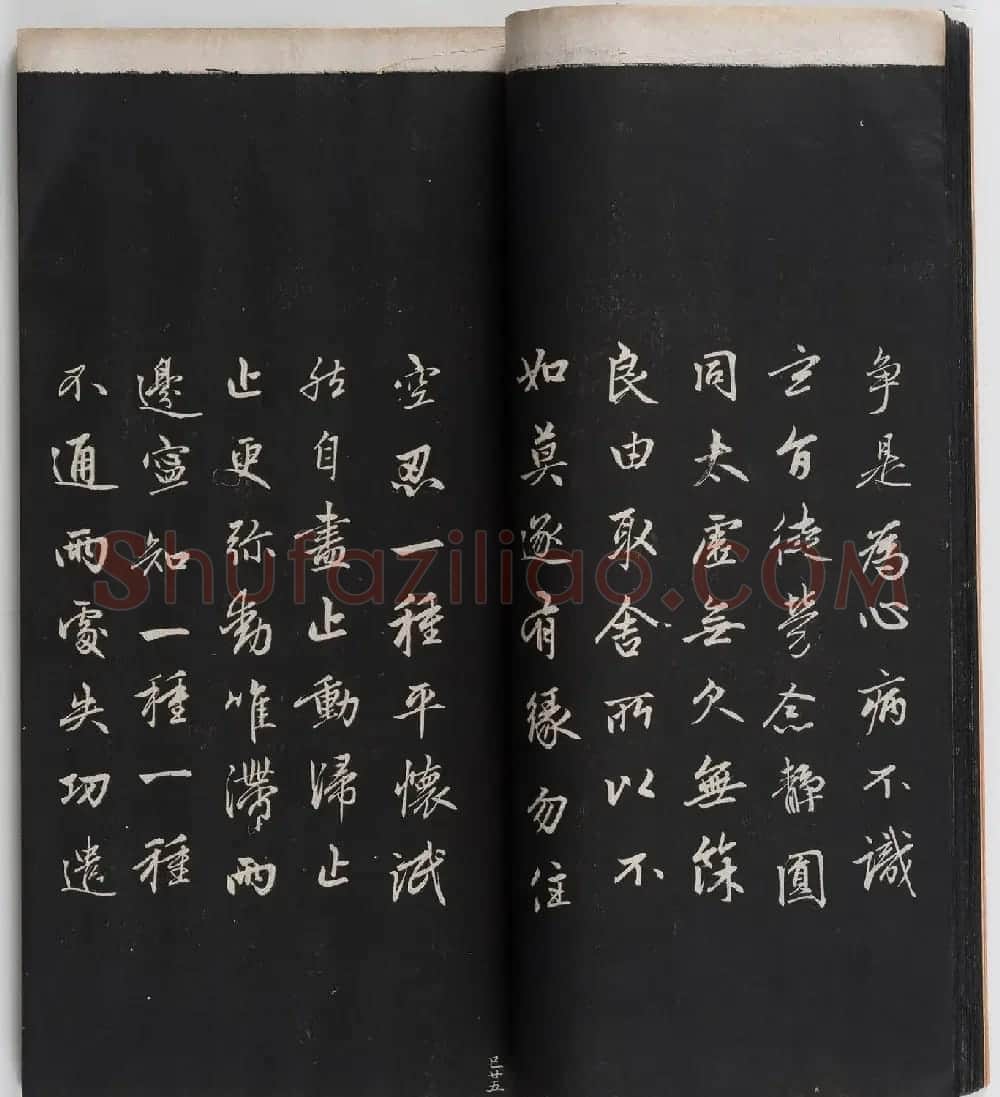 争是為心病不識
玄旨徒勞念靜圓
同太虛無欠無餘
良由取舍所以不
如莫逐有緣勿住
空忍一種平懷泯
然自盡止動歸止
止更弥動唯滯兩
邊寧知一種一種
不通兩處失功遣
巳廿五
Shufaziliao.COM